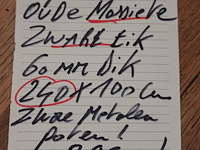 OUDE MASSIEVE
ZWARE EIK
60 MM DIK
240 X 100 Cm
ZWARE METALEN
POTEN!